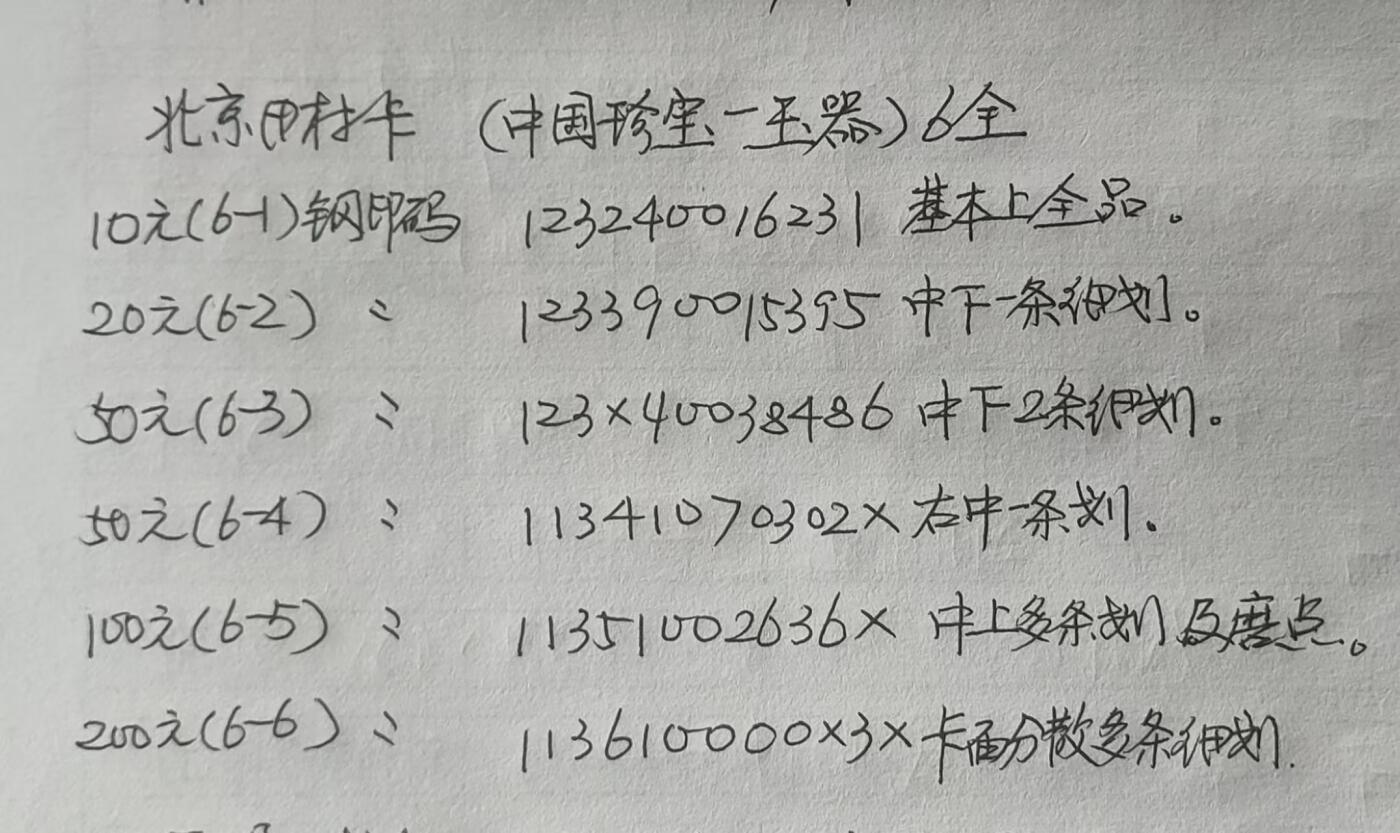 北京田村卡 (中国珍宝一玉器) 6全
10元(6-1)钢印码 123240016231 基本上全品。
20元(6-2) 〃 123390015395 中下一条细划。
50元(6-3) 〃 123×40038486 中下2条细划。
50元(6-4) 〃 11341070302× 右中一条划.
100元(6-5) 〃 11351002636× 中上多条划及磨点。
200元(6-6) 〃 113610000×3× 卡面分散多条细划.